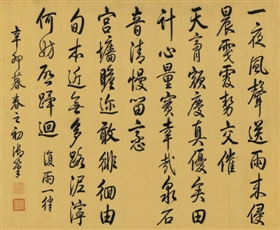 一夜風聲送雨來侵
晨霢霂勢交催
天膏額慶真優矣田
計心量實幸哉泉石
音清慢留憩
宮墻瞻迩敢徘徊由
旬本近無多路泥濘
何妨啟蹕迴 復雨一律
辛卯暮春之初御筆